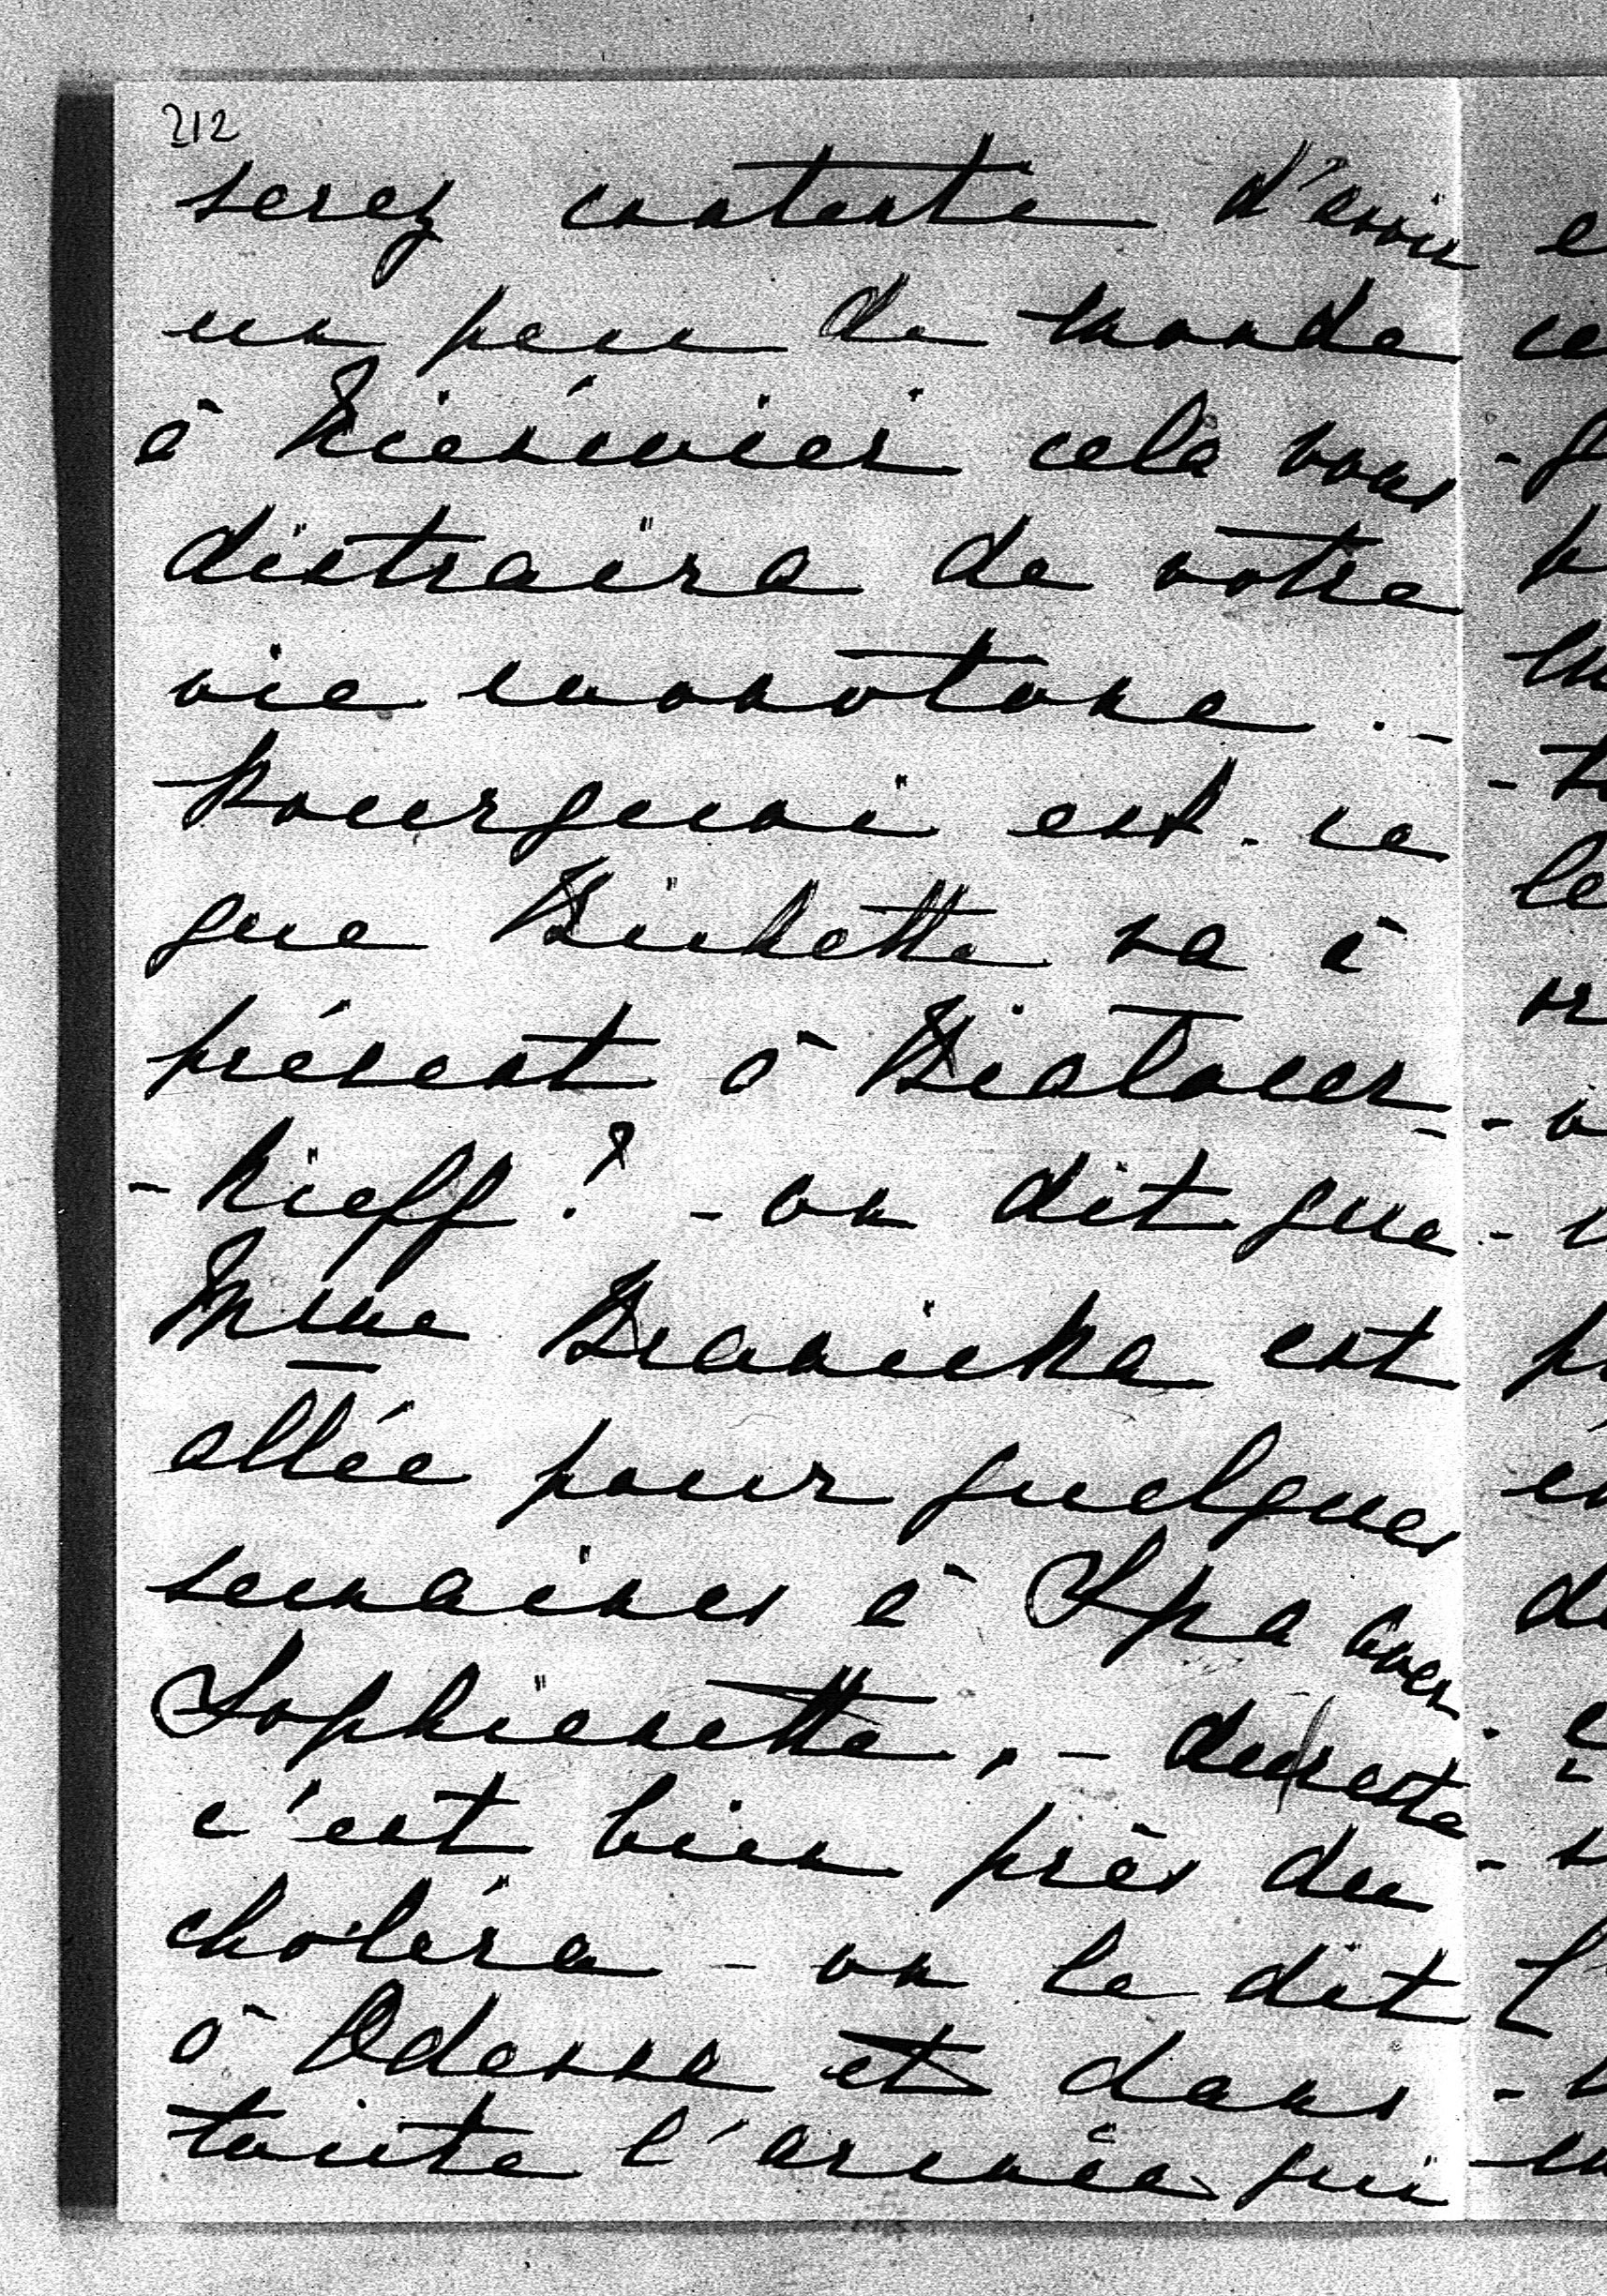 212
serez contente d'avoir
un peu de monde
à Niéswiez cela vous
distraira de votre
vie monotone. -
Pourquoi est-ce
que Bichette va à
présent à Bialocer-
-kieff? - on dit que
Mme Branicka est
allée pour quelques
semaines à Spa avec
Sophienette, - du reste
c'est bien près du
choléra - on le dit
à Odessa et dans
toute l'armée qui